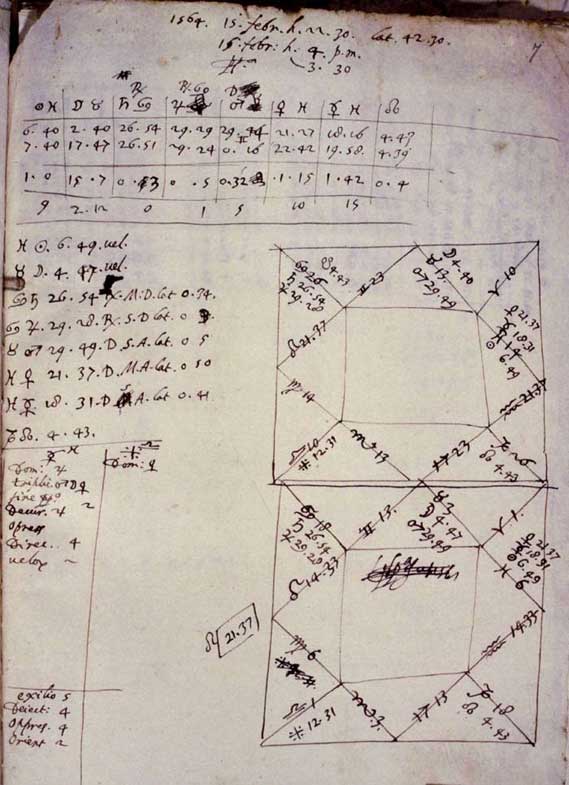 1564. 15. febr. h. 22. 30. lat. 42. 30.
15. febr: h. 4 p.m.
3. 30
7
☉ ♓ ☽ ♉ ♄ ♋ ♃ ♂ ♀ ♓ ☿ ♓ ☊
6. 40 2. 40 26. 54 29. 29 29. 44 21. 27 18. 16 4. 43
7. 40 17. 47 26. 51 29. 24 0. 16 22. 42 19. 58 4. 39
1. 0 15. 7 0. 3 0. 5 0. 32 1. 15 1. 42 0. 4
9 2. 12 0 1 5 10 15
♓ ☉. 6. 49. vel.
♉ ☽. 4. 47. vel.
♋ ♄ 26. 54 ℞. M. D. lat 0. 34.
♋ ♃. 29. 28. ℞. S. D. lat. 0
♉ ♂. 29. 49. D. S. A. lat. 0 5
♓ ♀ 21. 37. D. M. A. lat. 0 50
♓ ☿ 18. 31. D A. lat 0. 41
♑ ☊. 4. 43.
Dom: ♃
Dom: ♀
Decur. ♃ 2
opress
Direc. 4
velox
exilio 5
Deiect: 4
oppres. 4
Orient 2
♋ 26
♄ 26. 54
♃ 29. 28
☋ 4. 43
♊ 23
☽ 4. 40
♉ 13
♂ 29. 49
♈ 10
♀ 21. 37
☿ 18. 31
♓ 14
☉ 6. 49
♌ 21. 37
♒ 21. 37
♍ 14
♎ 10
12. 31
♏ 13
♐ 23
♑ 26
☊ 4. 43
♋ 18
♄ 26. 54
♃ 29. 28
♊ 13.
♉ 3
☽ 4. 47
♂ 29. 49
♈ 1.
♀ 21. 37
☿ 18. 31
☉ 6. 49
♓ 6
♌ 14. 33
♌ 21. 37
♒ 14. 33
♍ 6
♎ 1
12. 31
♏ 3.
♐ 13
♑ 18
☊ 4. 43